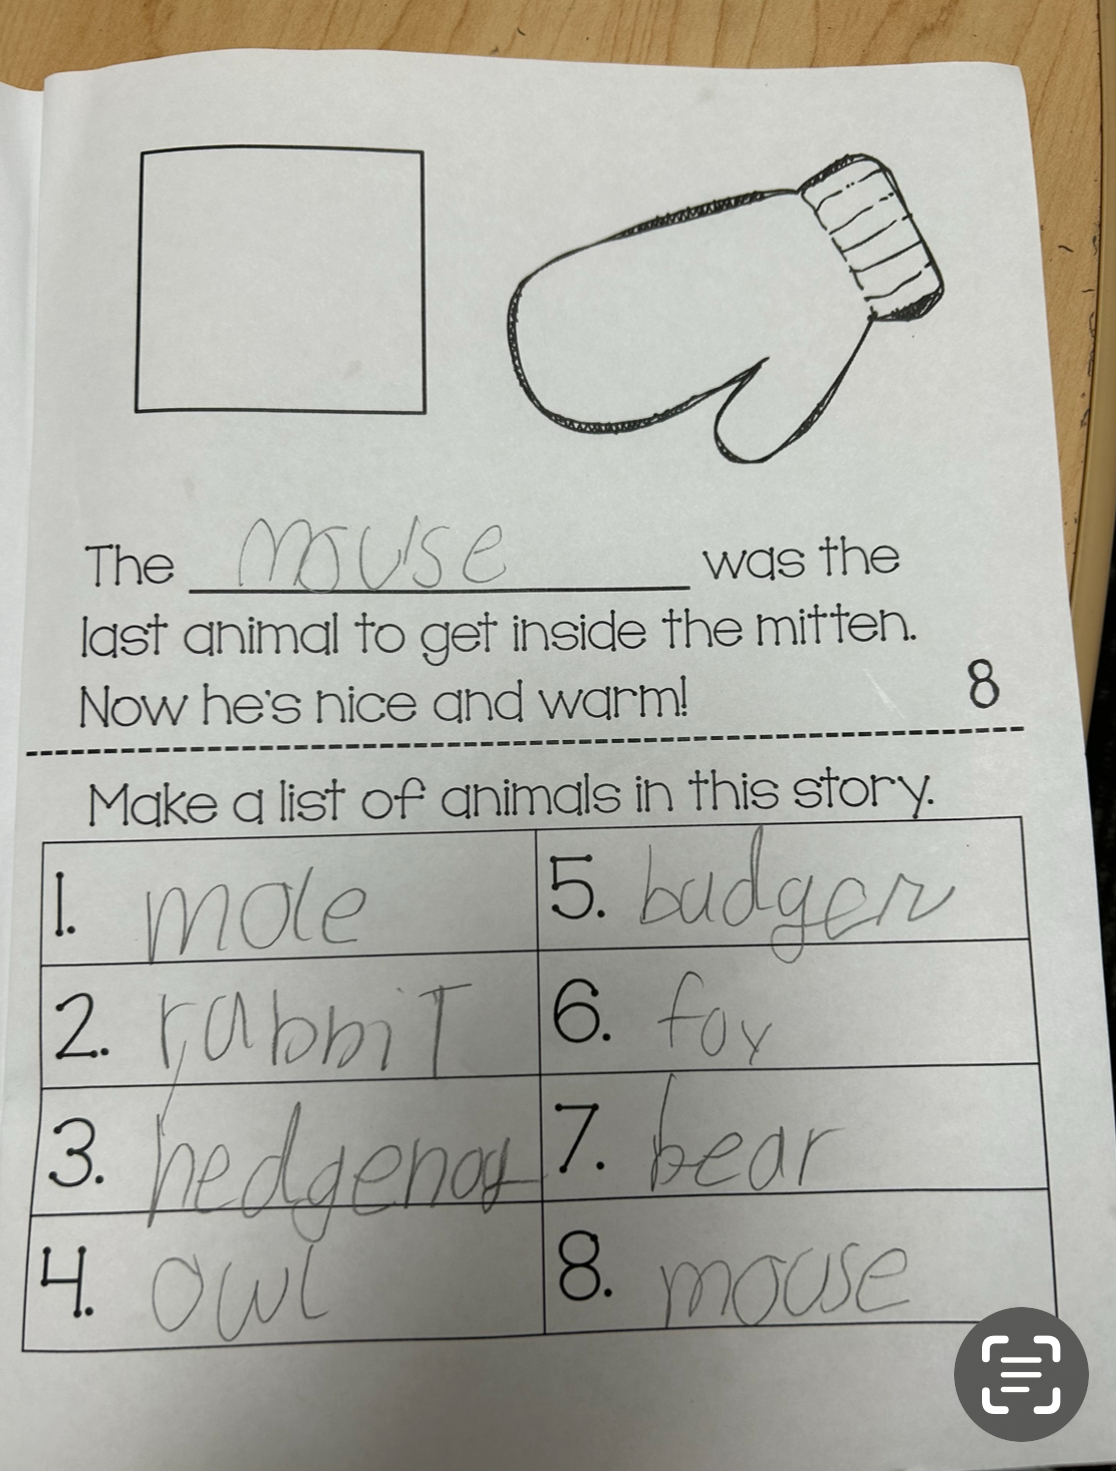 The mouse was the
last animal to get inside the mitten.
Now he's nice and warm!
8
Make a list of animals in this story.
1. mole
5. badger
2. rabbit
6. fox
3. hedgehog
7. bear
4. owl
8. mouse